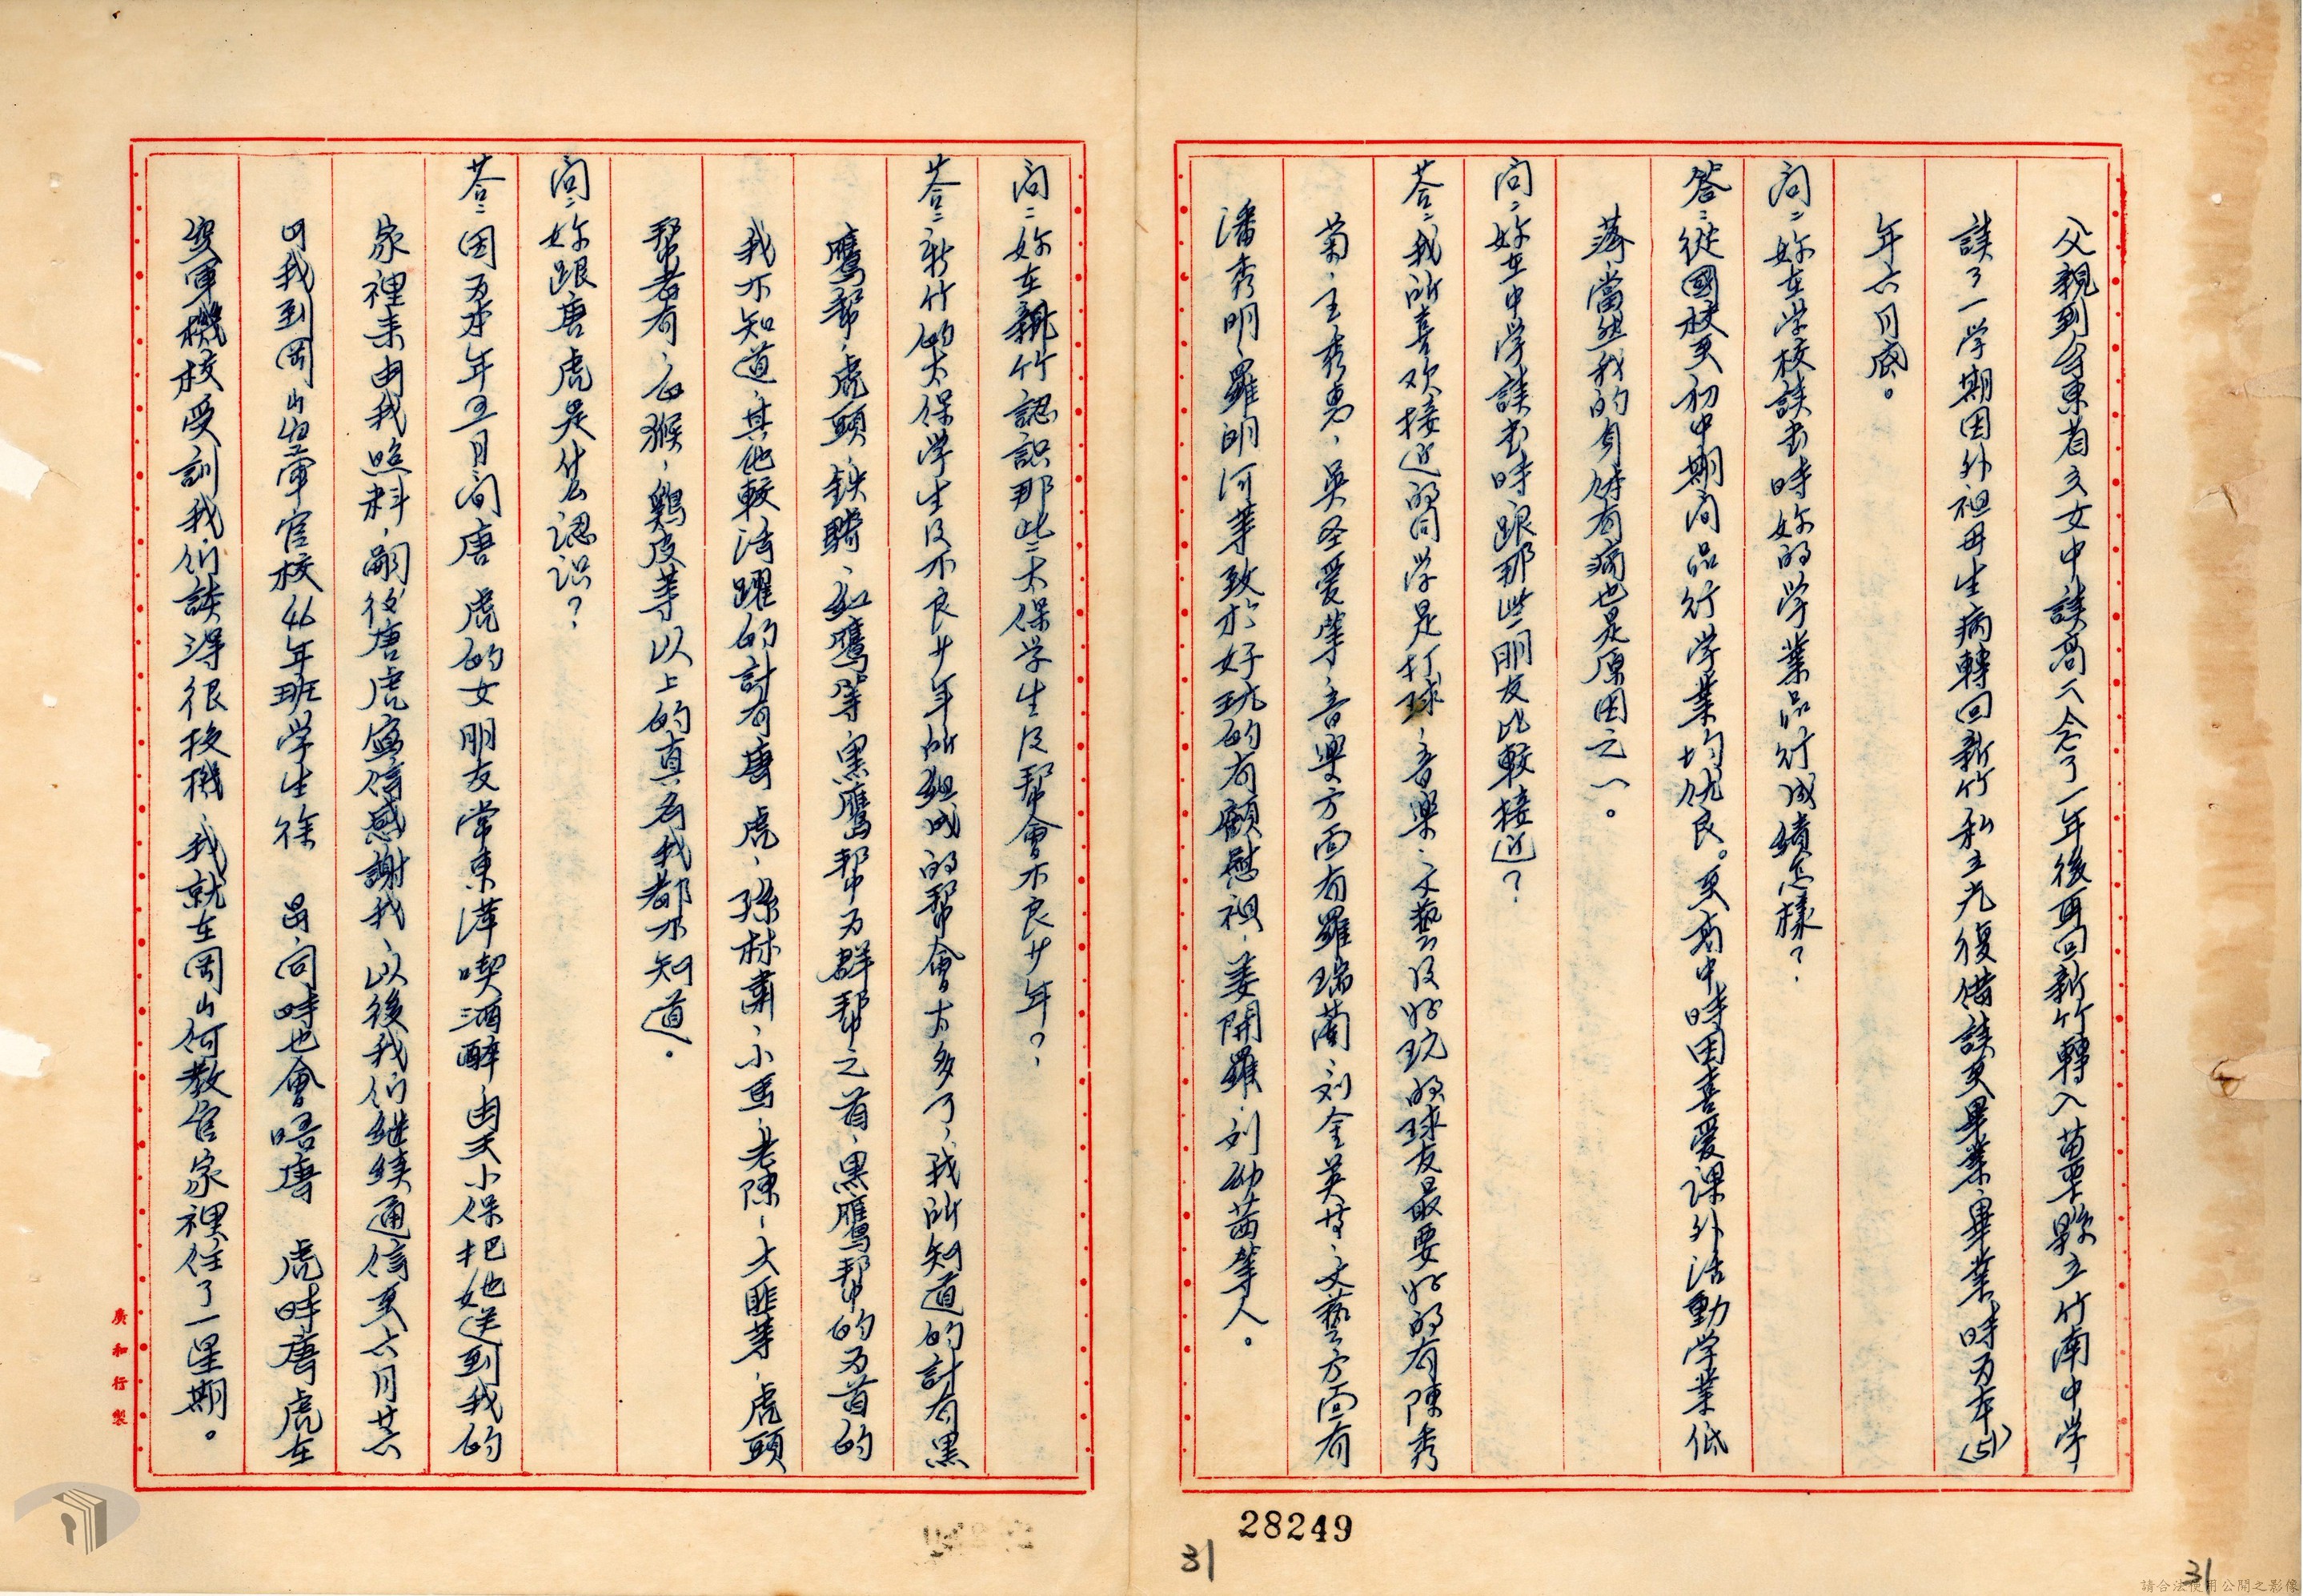 父親到台東省立女中讀高一念了一年後再回新竹轉入苗栗縣立竹南中學
讀了一学期因外祖母生病轉回新竹私立光復借讀至畢業、畢業時为本(51)
年六月底。
问：妳在学校讀书時妳的学業品行成績怎樣？
答：從國校至初中期间品行学業均优良。至高中時因喜爱課外活動学業低
落、當然我的身体有病也是原因之一。
问：妳在中学讀书時跟那些朋友比較接近？
荅：我所喜欢接近的同学是打球、音樂、文藝及好玩的球友最要好的有陳秀
菊、王秀惠、吳圣爱等、音樂方面有羅瑞蘭、刘金英等、文藝方面有
潘秀明、羅明河等致於好玩的有顧慰祖、姜開羅、刘幼茜等人。
问：妳在新竹認識那些太保学生及帮會不良少年？
荅：新竹的太保学生及不良少年所組成的帮會太多了、我所知道的計有黑
鷹幫、虎頭、鉄騎、紅鷹等、黑鷹帮为群帮之首、黑鷹帮的为首的
我不知道、其他較活躍的計有唐虎、孫林肅、小馬、老陳、大匪等、虎頭
幫者有、白猴、鷄皮等以上的真名我都不知道。
问：妳跟唐虎是什么認识？
荅：因为本年五月间唐虎的女朋友常東萍喫酒醉由天小保把她送到我的
家裡来由我照料、嗣後唐虎寫信感謝我、以後我们继续通信至六月廿六
日我到岡山空軍官校46年班学生徐 昌、同時也會晤唐 虎時唐虎在
空軍機校受訓我们談得很投機、我就在岡山何教官家裡住了一星期。
廣和行製
28249
31
31
請合法使用公開之影像